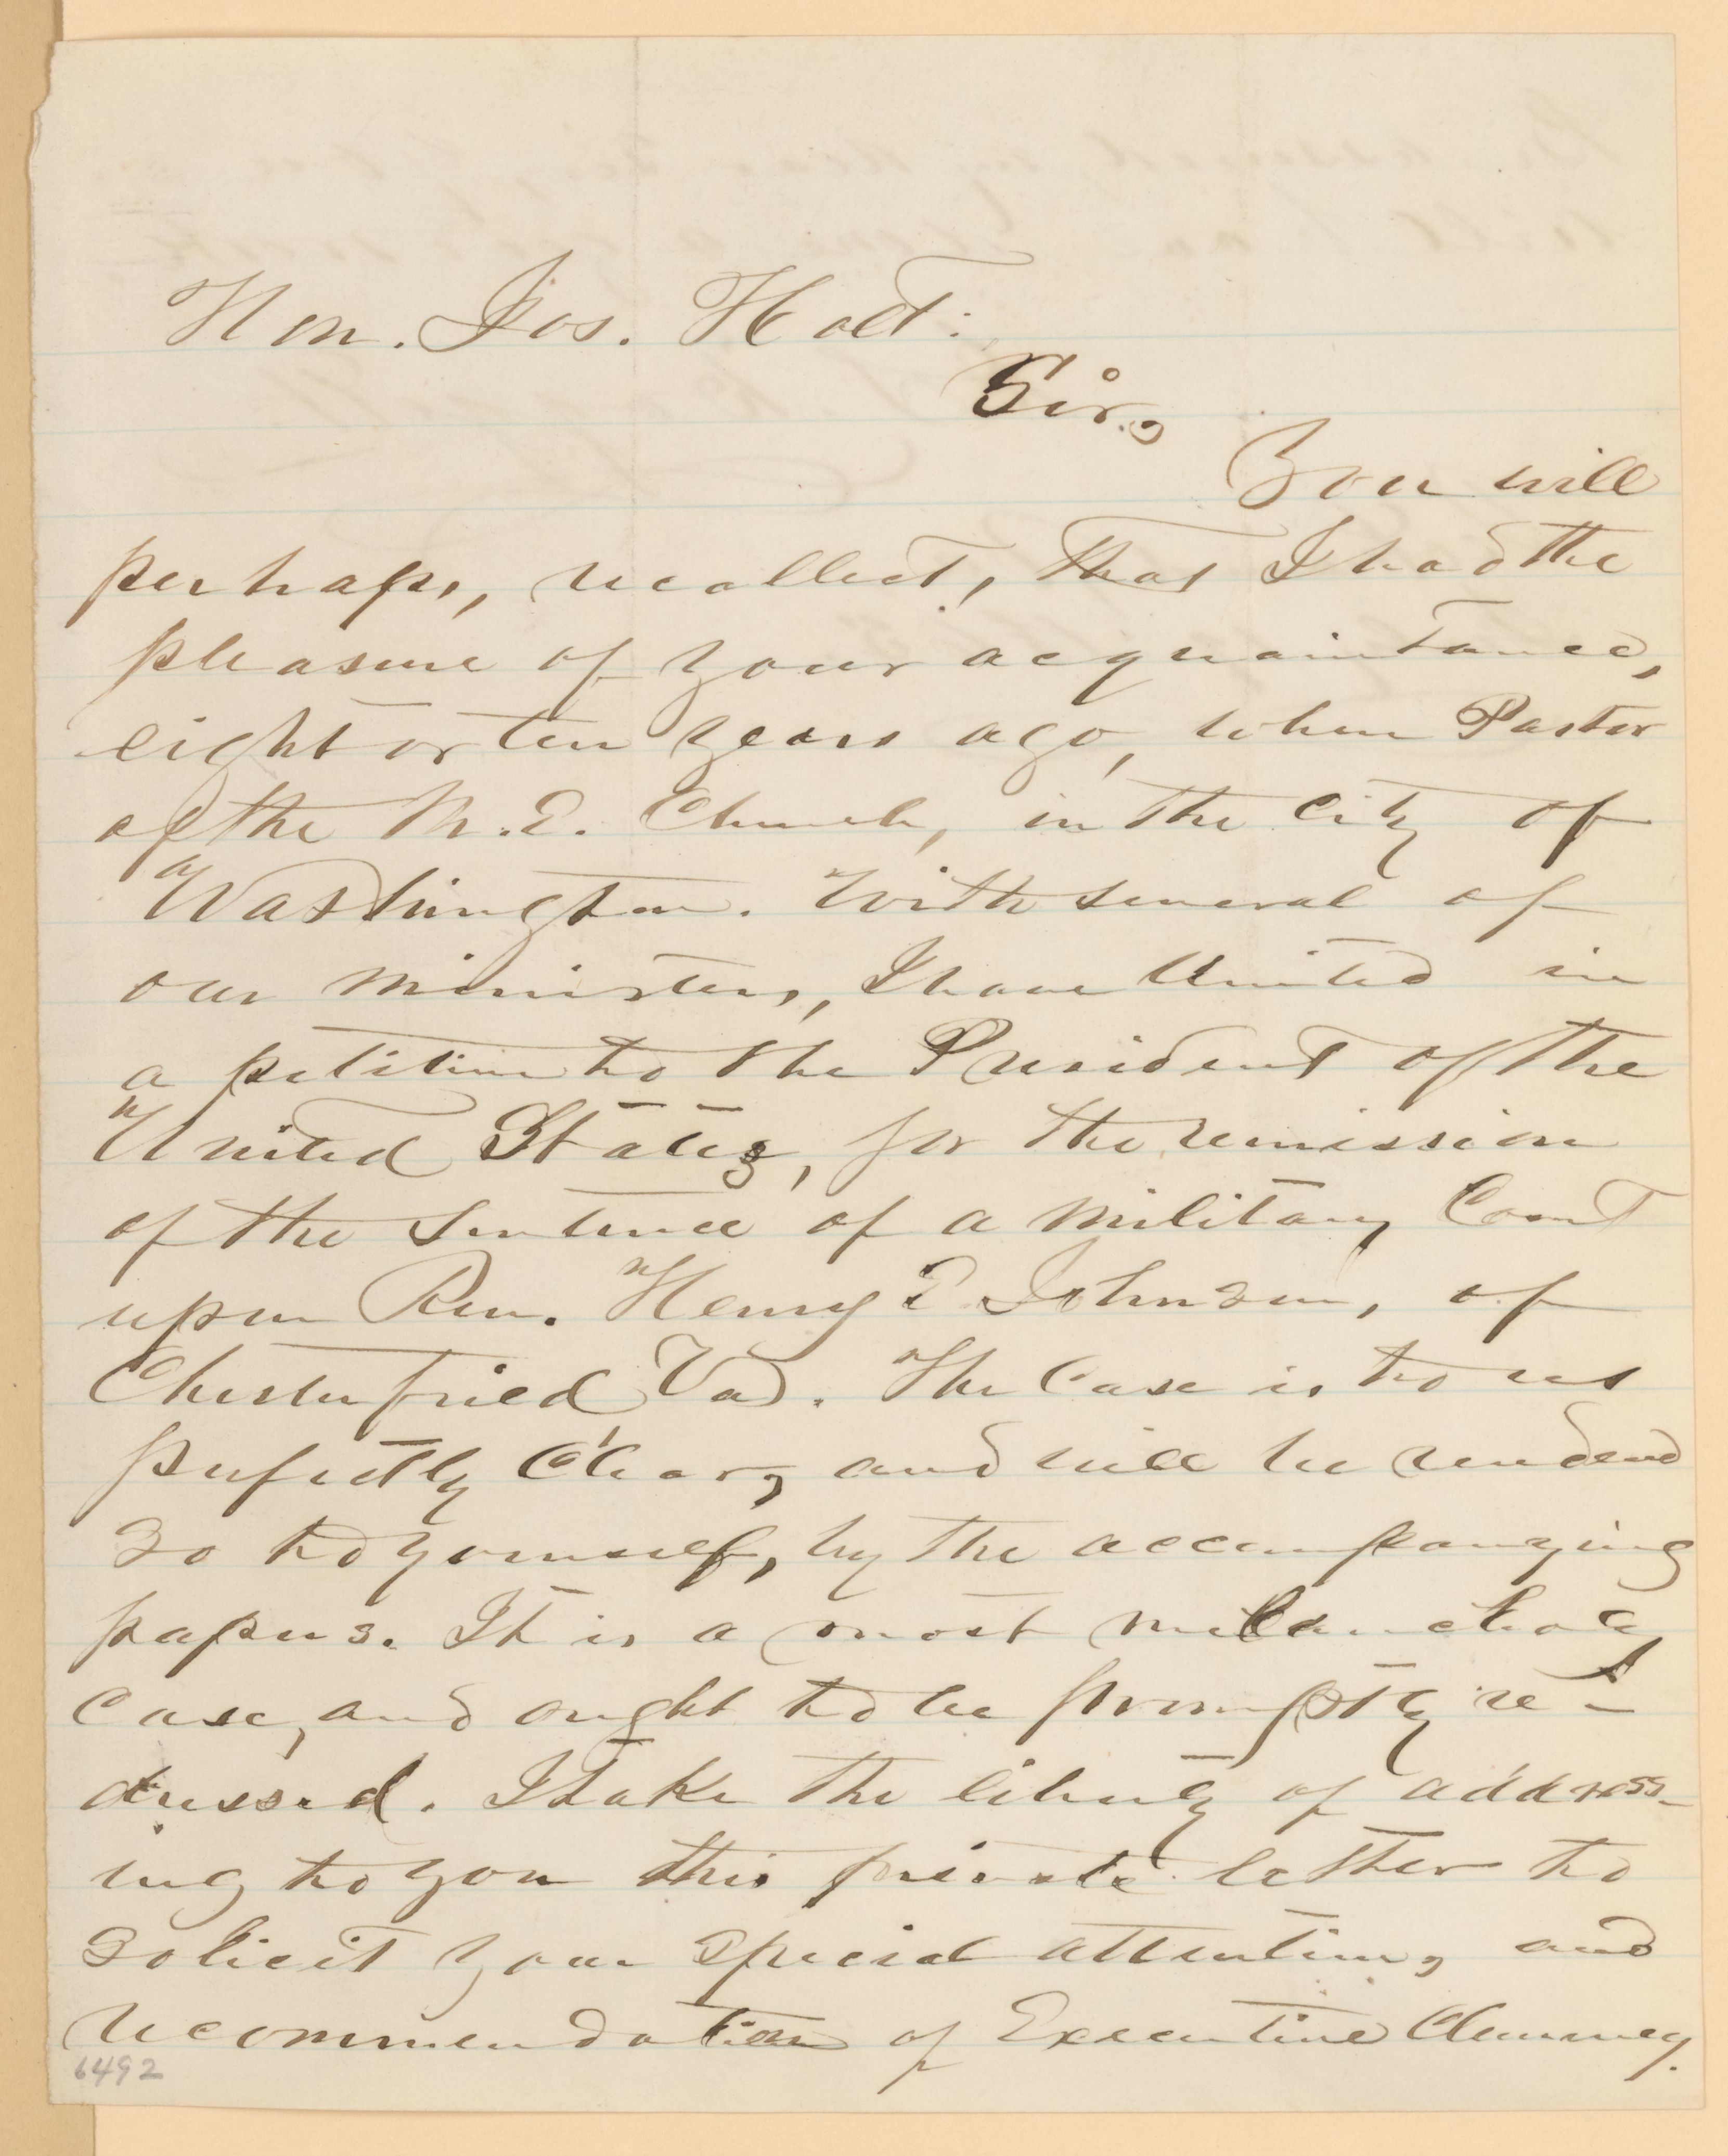 Hon. Jos. Holt:
Sir,
You will
perhaps, recollect, that I had the
pleasure of your acquaintance,
eight or ten years ago, when Pastor
of the M. E. Church, in the City of
Washington. With several of
our ministers, I have united in
a petition to the President of the
United States, for the remission
of the sentence of a military Court
upon Rev. Henry E Johnson, of
Chesterfield Va. The case is to us
perfectly clear, and will be rendered
so to yourself, by the accompanying
papers. It is a most melancholy
case, and ought to be promptly re-
dressed. I take the liberty of address-
ing to you this private letter to
solicit your special attention, and
recommendation of Executive Clemency.
6492